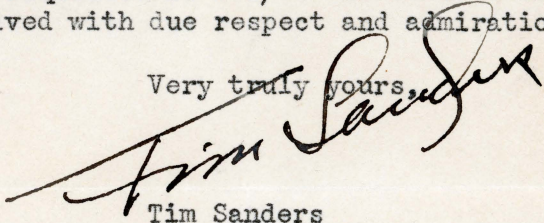 ved with due respect and admiratio
Very truly yours,
Tim Sanders
Tim Sanders